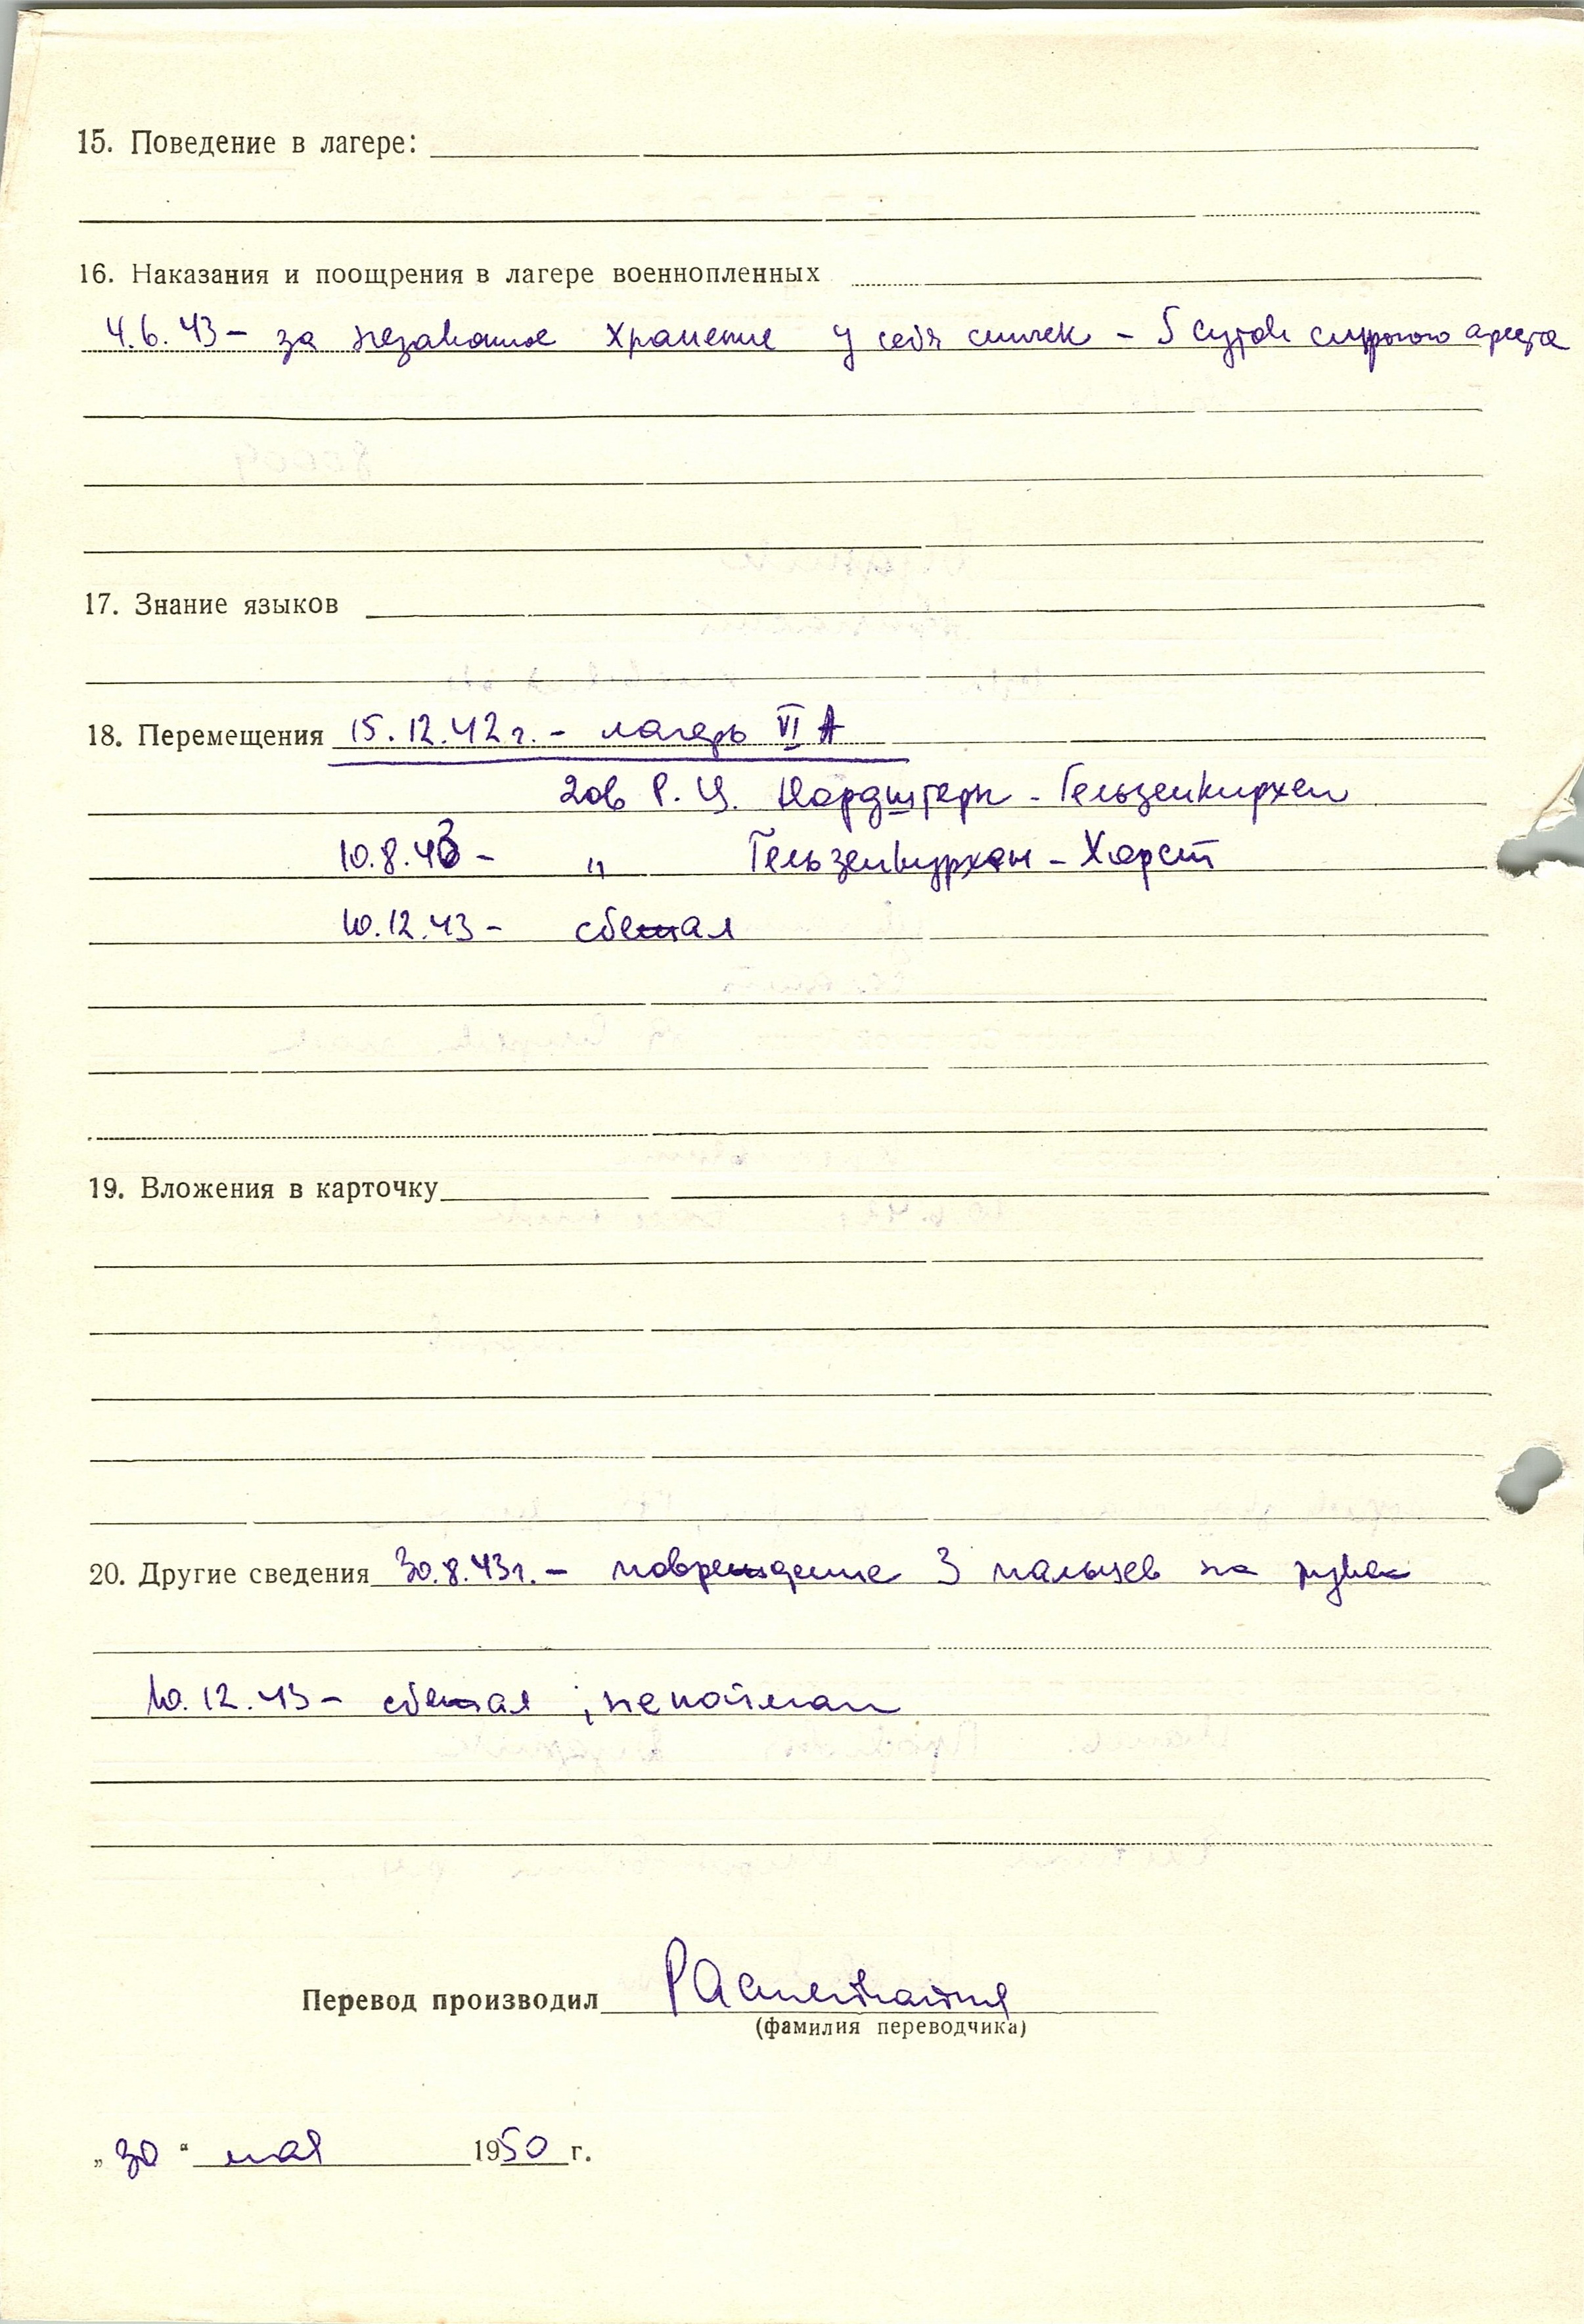 15. Поведение в лагере:
16. Наказания и поощрения в лагере военнопленных
4.6.43 – за незаконное хранение у себя спичек – 5 суток строгого ареста
17. Знание языков
18. Перемещения 15.12.42 г. – лагерь VI А
Р. Ц. Нордштерн – Гельзенкирхен
10.8.43 – " Гельзенкирхен – Хорст
10.12.43 – сбежал
19. Вложения в карточку
20. Другие сведения 30.8.43 г. – повреждение 3 пальцев на руке
10.12.43 – сбежал; не пойман
Перевод производил
(фамилия переводчика)
„30“ мая 1950 г.